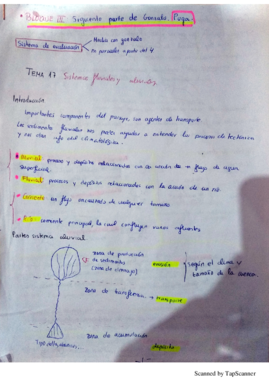 • BLOQUE III Siguiente parte de Gonzalo Rizgar
Sistema de evaluación
Media con
En parciales a partir del 4
TEMA 17 Sistemas fluviales y aluviales
Introducción
Importantes componentes del paisaje con agentes de transporte.
Los sedimentos fluviales nos ayudan a entender los procesos de tectónica
y nos dan info del climatológica.
• Aluvial: proceso y depósito relacionados con la acción de un flujo de agua
superficial.
• Fluvial: procesos y depósitos relacionados con la acción de un río
• Corriente: es flujo encauzado de cualquier tamaño
• Río: corriente principal, la cual confluyen varios afluentes
Partes sistema aluvial
Zona de producción
de sedimentos
(zona de drenaje)
erosión
según el clima y
tamaño de la cuenca
Zona de transferencia → transporte
Zona de acumulación
depósito
Scanned by TapScanner